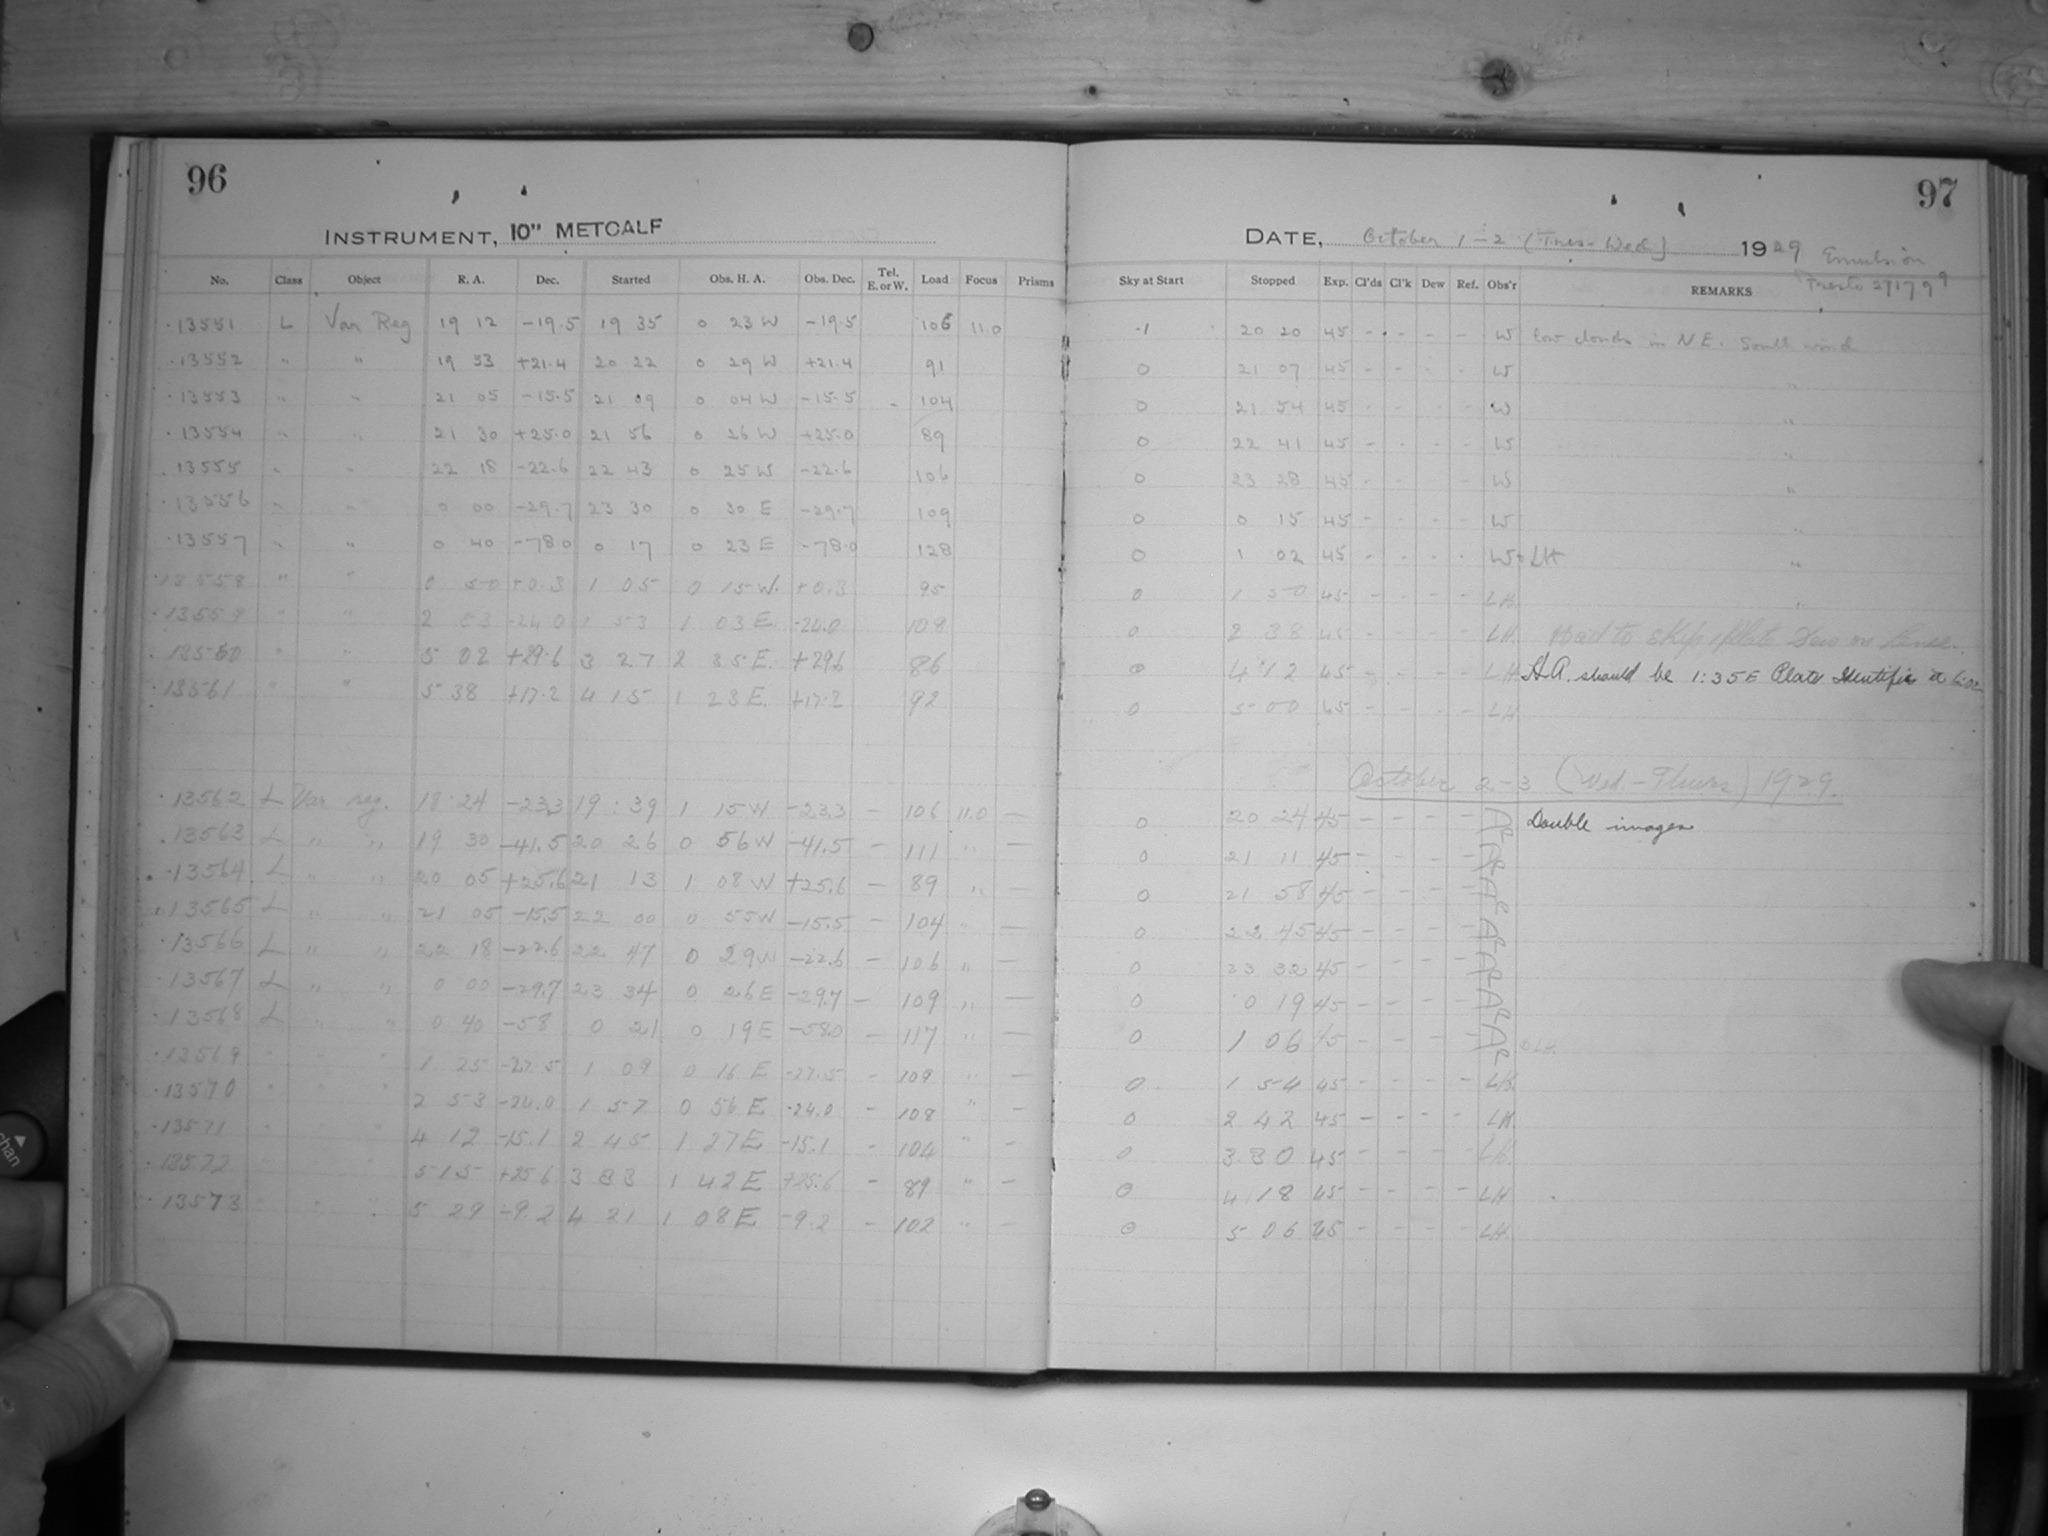 96
INSTRUMENT, 10" METCALF
No. Class Object R. A. Dec. Started Obs. H. A. Obs. Dec. Tel. E. or W. Load Focus Prisms
13551 L Var Reg 19 12 -19.5 19 35 0 23 W -19.5 106 11.0
13552 " " 19 53 +21.4 20 22 0 29 W +21.4 91
13553 " " 21 05 -15.5 21 09 0 04 W -15.5 - 104
13554 " " 21 30 +25.0 21 56 0 26 W +25.0 89
13555 " " 22 18 -22.6 22 43 0 25 W -22.6 106
13556 " " 0 00 -29.7 23 30 0 30 E -29.7 109
13557 " " 0 40 -78.0 0 17 0 23 E -78.0 128
13558 " " 0 50 +0.3 1 05 0 15 W. +0.3 95
13559 " " 2 53 -24.0 1 53 1 03 E -24.0 108
13560 " " 5 02 +29.6 3 27 2 35 E. +29.6 86
13561 " " 5 38 +17.2 4 15 1 23 E. +17.2 92
13562 L Var reg. 18 24 -23.3 19 : 39 1 15 W -23.3 - 106 11.0 -
13563 L " " 19 30 -41.5 20 26 0 56 W -41.5 - 111 " -
13564 L " " 20 05 +25.6 21 13 1 08 W +25.6 - 89 " -
13565 L " " 21 05 -15.5 22 00 0 55 W -15.5 - 104 " -
13566 L " " 22 18 -22.6 22 47 0 29 W -22.6 - 106 " -
13567 L " " 0 00 -29.7 23 34 0 26 E -29.7 - 109 " -
13568 L " " 0 40 -58 0 21 0 19 E -58.0 - 117 " -
13569 " " " 1 25 -27.5 1 09 0 16 E -27.5 - 109 " -
13570 " " " 2 53 -24.0 1 57 0 56 E -24.0 - 108 " -
13571 " " " 4 12 -15.1 2 45 1 27 E -15.1 - 104 " -
13572 " " " 5 15 +25.6 3 33 1 42 E +25.6 - 89 " -
13573 " " " 5 29 -9.2 4 21 1 08 E -9.2 - 102 " -
97
DATE, October 1-2 (Tues-Wed) 1929 Emulsion
Presto 27179
Sky at Start Stopped Exp. Cl'ds Cl'k Dew Ref. Obs'r REMARKS
-1 20 20 45 - - - - W low clouds in NE. South wind
0 21 07 45 - - - - W "
0 21 54 45 - - - - W "
0 22 41 45 - - - - W "
0 23 28 45 - - - - W "
0 0 15 45 - - - - W "
0 1 02 45 - - - - W+LH "
0 1 50 45 - - - - LH "
0 2 38 45 - - - - LH. Had to skip 1 plate Dew on Lense.
0 4 12 45 - - - - LH H.A. should be 1:35 E Plate Identified
0 5 00 45 - - - - LH
October 2-3 (Wed.-Thurs) 1929.
0 20 24 45 - - - - AR Double images
0 21 11 45 - - - - AR
0 21 58 45 - - - - AR
0 22 45 45 - - - - AR
0 23 32 45 - - - - AR
0 0 19 45 - - - - AR
0 1 06 45 - - - - AR
0 1 54 45 - - - - LH.
0 2 42 45 - - - - LH
0 3 30 45 - - - - LH.
0 4 18 45 - - - - LH
0 5 06 45 - - - - LH.